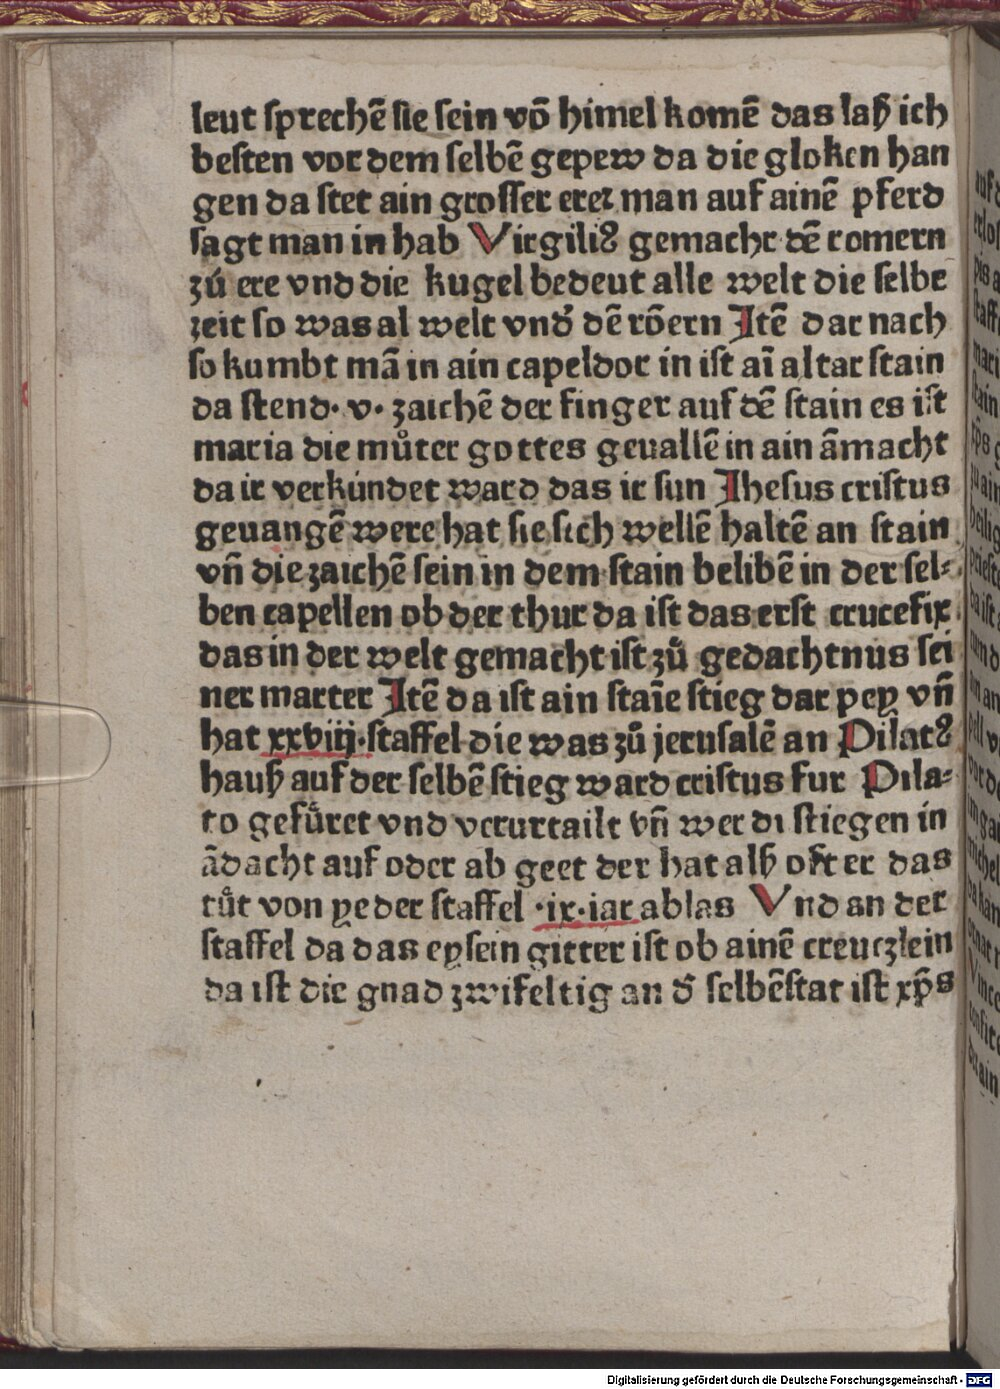 leut sprechē sie sein vō himel komē das laß ich
besten vor dem selbē gepew da die gloken han
gen da stet ain grosser erer man auf ainē pferd
sagt man in hab Virgiliꝰ gemacht dē romern
zů ere vnd die kugel bedeut alle welt die selbe
zeit so was al welt vnd᷑ dē rōern Jtē dar nach
so kumbt mā in ain capel dor in ist aī altar stain
da stend· v· zaichē der finger auf dē stain es ist
maria die můter gottes geuallē in ain āmacht
da ir verkúndet ward das ir sun Jhesus cristus
geuangē were hat sie sich wellē haltē an stain
vn̄ die zaichē sein in dem stain belibē in der sel⸗
ben capellen ob der thur da ist das erst crucefix
das in der welt gemacht ist zů gedachtnus sei
ner marter Jtē da ist ain staīe stieg dar pey vn̄
hat xxviij·staffel die was zů jerusalē an Pilatꝰ
hauß auf der selbē stieg ward cristus fur Pila⸗
to gefůret vnd verurtailt vn̄ wer di stiegen in
ādacht auf oder ab geet der hat alß oft er das
tůt von yeder staffel ·ix·iar ablas Vnd an der
staffel da das eysein gitter ist ob ainē creuczlein
da ist die gnad zwifeltig an d᷑ selbēstat ist xp̄s